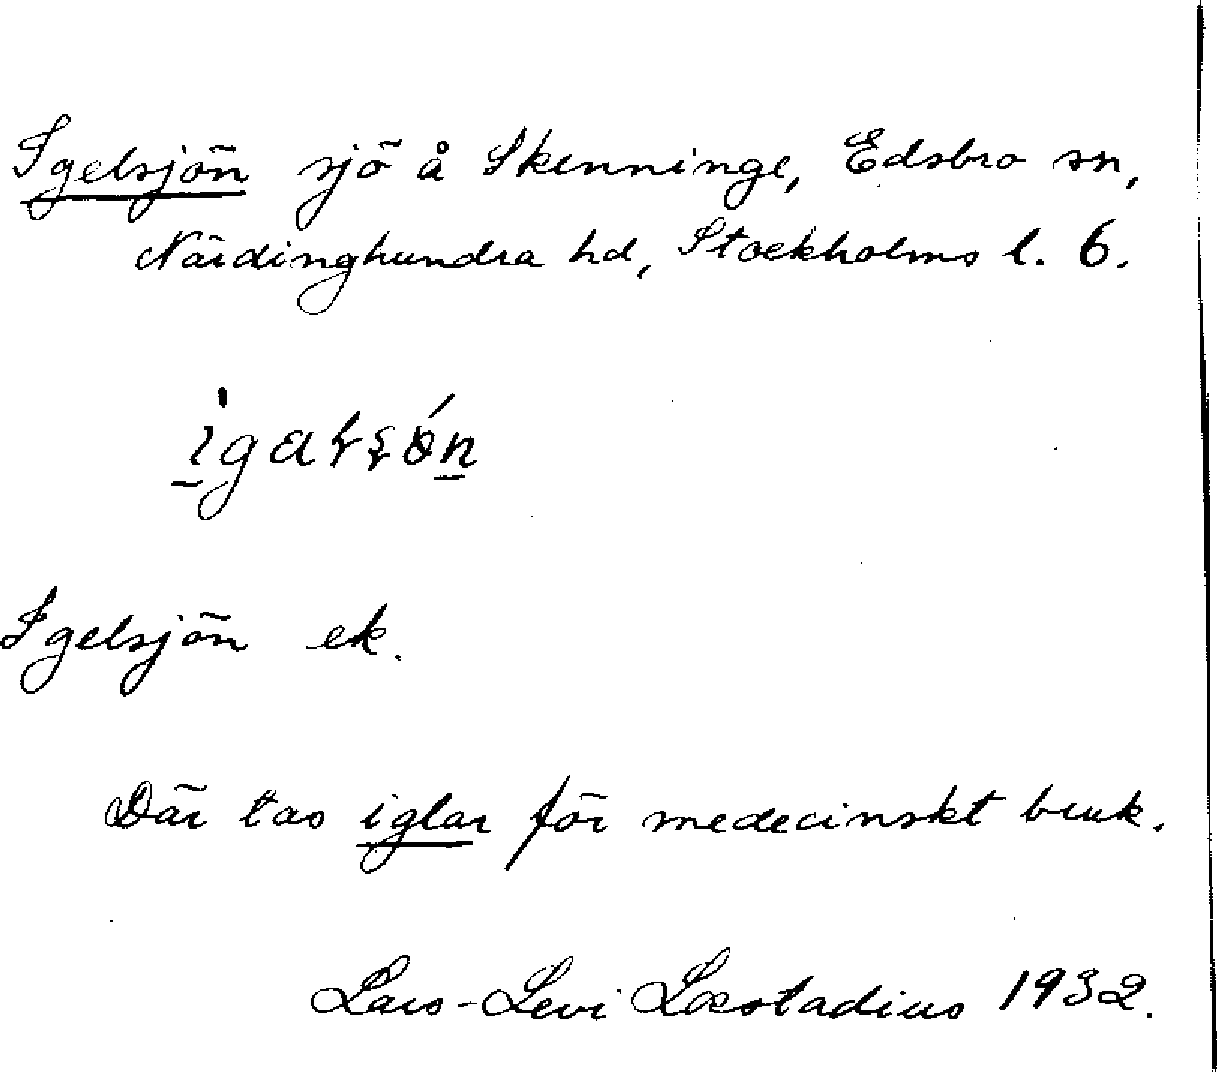 Igelsjön sjö å Skenninge, Edsbro sn,
Närdinghundra hd, Stockholms l. 6.
Igelsjön ek.
Där tas iglar för medecinskt bruk.
Lars-Levi Læstadius 1932.